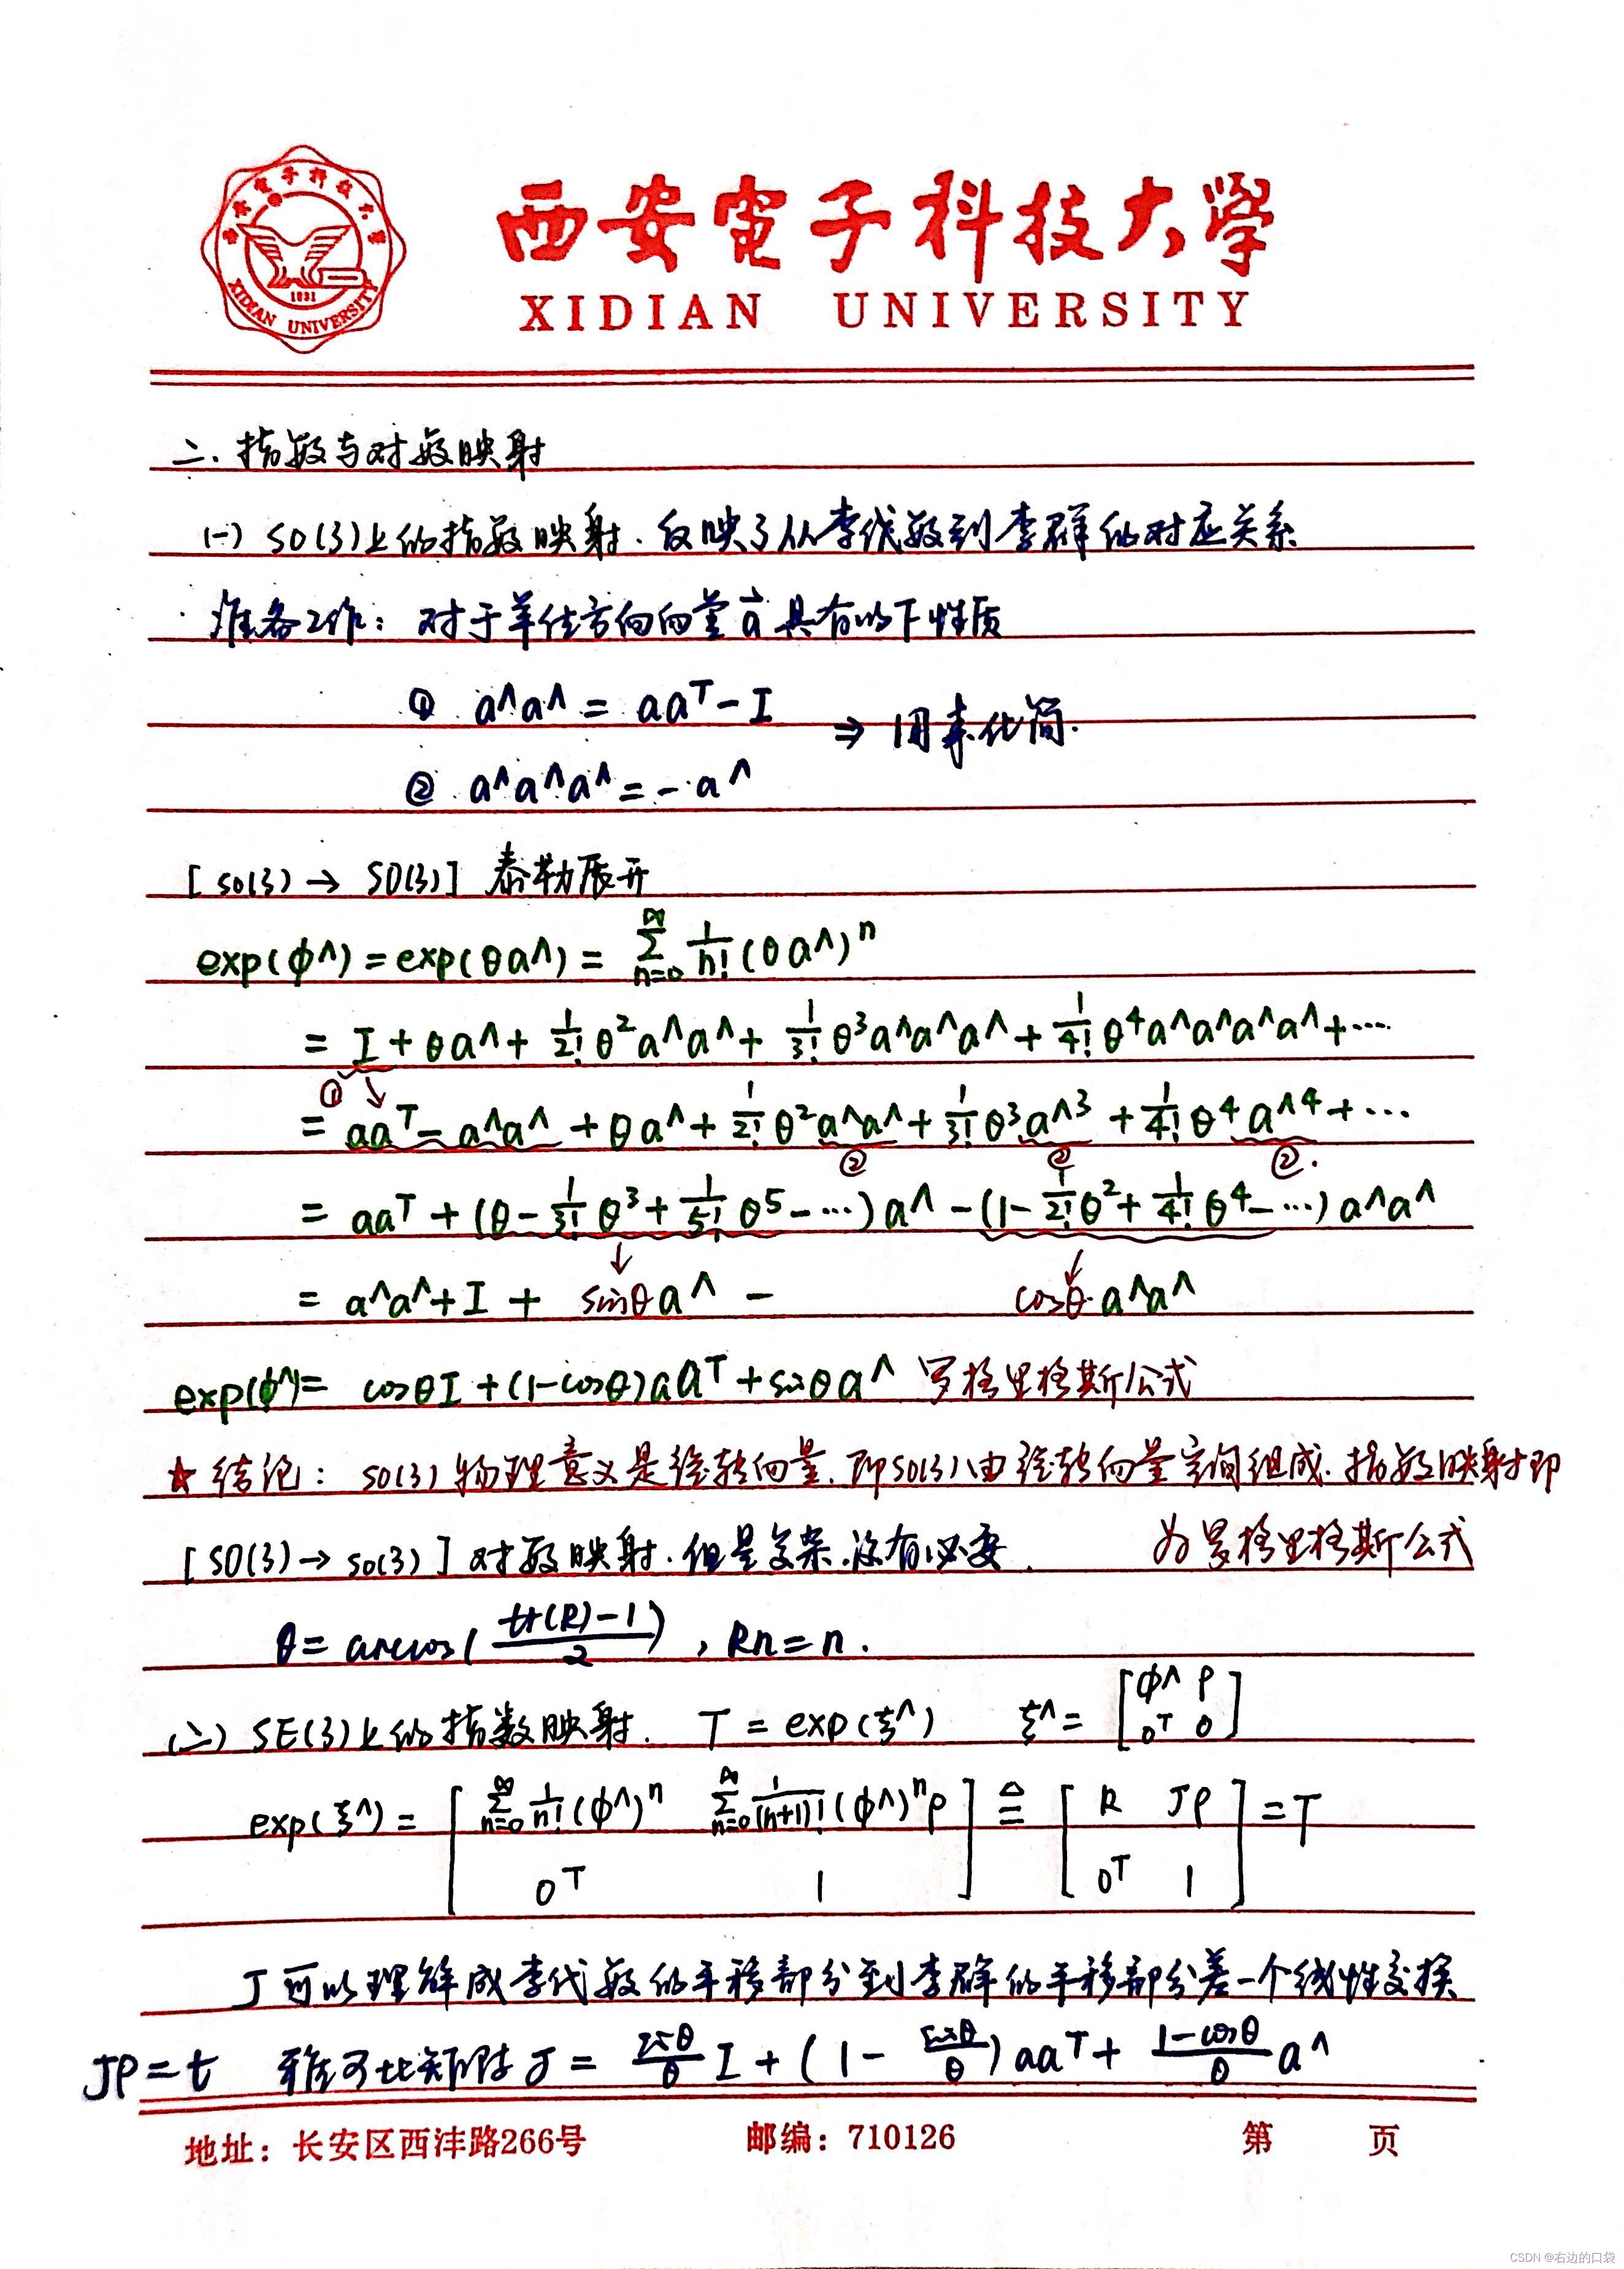 西安電子科技大學
XIDIAN UNIVERSITY
西安电子科技大学
1931
XIDIAN UNIVERSITY
二. 指数与对数映射
(一) SO(3)上的指数映射. 反映了从李代数到李群的对应关系
准备工作: 对于单位方向向量 a⃗ 具有以下性质
① a^a^ = aaᵀ - I
⇒ 用来化简.
② a^a^a^ = - a^
[so(3) → SO(3)] 泰勒展开
exp(φ^) = exp(θa^) = ∑_{n=0}^{∞} 1/n! (θa^)ⁿ
= I + θa^ + 1/2! θ²a^a^ + 1/3! θ³a^a^a^ + 1/4! θ⁴a^a^a^a^ + ⋯
① ↓
= aaᵀ - a^a^ + θa^ + 1/2! θ²a^a^ + 1/3! θ³a^³ + 1/4! θ⁴a^⁴ + ⋯
② ② ②.
= aaᵀ + (θ - 1/3! θ³ + 1/5! θ⁵ - ⋯) a^ - (1 - 1/2! θ² + 1/4! θ⁴ - ⋯) a^a^
↓ ↓
= a^a^ + I + sinθ a^ - cosθ·a^a^
exp(φ^) = cosθI + (1-cosθ)aaᵀ + sinθa^ 罗格里格斯公式
★ 结论: so(3)物理意义是旋转向量, 即so(3)由旋转向量空间组成. 指数映射即
为罗格里格斯公式
[SO(3) → so(3)] 对数映射. 但是复杂. 没有必要.
θ = arccos( (tr(R)-1)/2 ) , Rn = n.
(二) SE(3)上的指数映射. T = exp(ξ^) ξ^ = [φ^ ρ; 0ᵀ 0]
exp(ξ^) = [∑_{n=0}^{∞} 1/n! (φ^)ⁿ ∑_{n=0}^{∞} 1/(n+1)! (φ^)ⁿρ; 0ᵀ 1] ≜ [R Jρ; 0ᵀ 1] = T
J可以理解成李代数的平移部分到李群的平移部分差一个线性变换
Jρ = t 雅可比矩阵 J = sinθ/θ I + (1 - sinθ/θ) aaᵀ + (1-cosθ)/θ a^
地址: 长安区西沣路266号 邮编: 710126 第 页
CSDN @右边的口袋